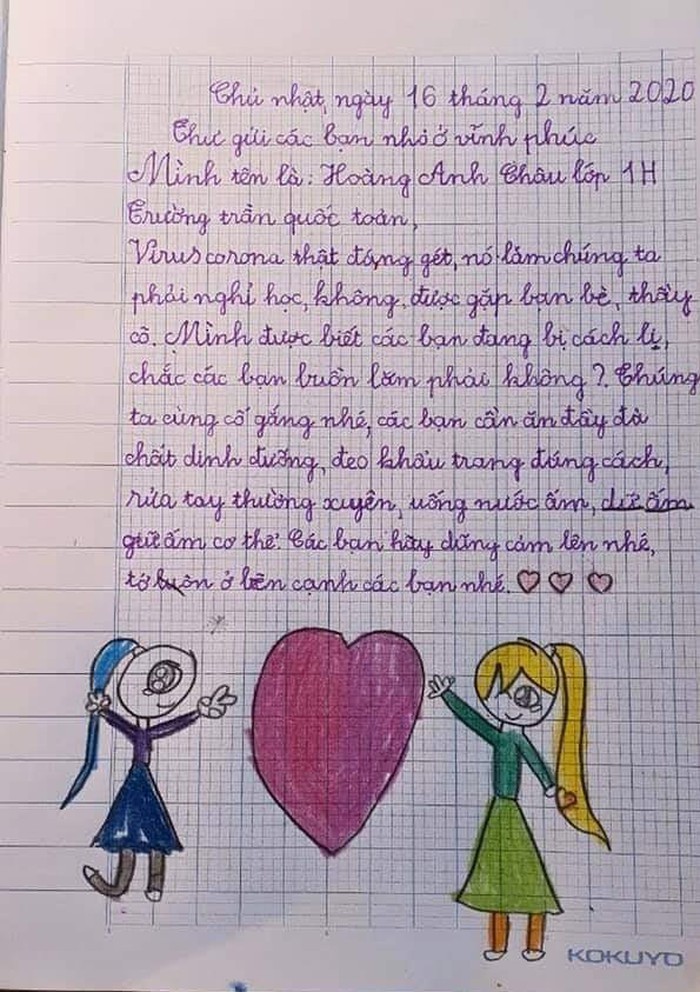 Chủ nhật, ngày 16 tháng 2 năm 2020
Thư gửi các bạn nhỏ ở vĩnh phúc
Mình tên là: Hoàng Anh Châu lớp 1H
Trường trần quốc toàn,
Virus corona thật đáng gét, nó làm chúng ta
phải nghỉ học, không, được gặp bạn bè, thầy
cô. Mình được biết các bạn đang bị cách li,
chắc các bạn buồn lắm phải không? Chúng
ta cùng cố gắng nhé, các bạn cần ăn đầy đủ
chất dinh dưỡng, đeo khẩu trang đúng cách,
rửa tay thường xuyên, uống nước ấm, dữ ấm
giữ ấm cơ thể. Các bạn hãy dũng cảm lên nhé,
tớ luôn ở bên cạnh các bạn nhé. ♡ ♡ ♡
KOKUYO